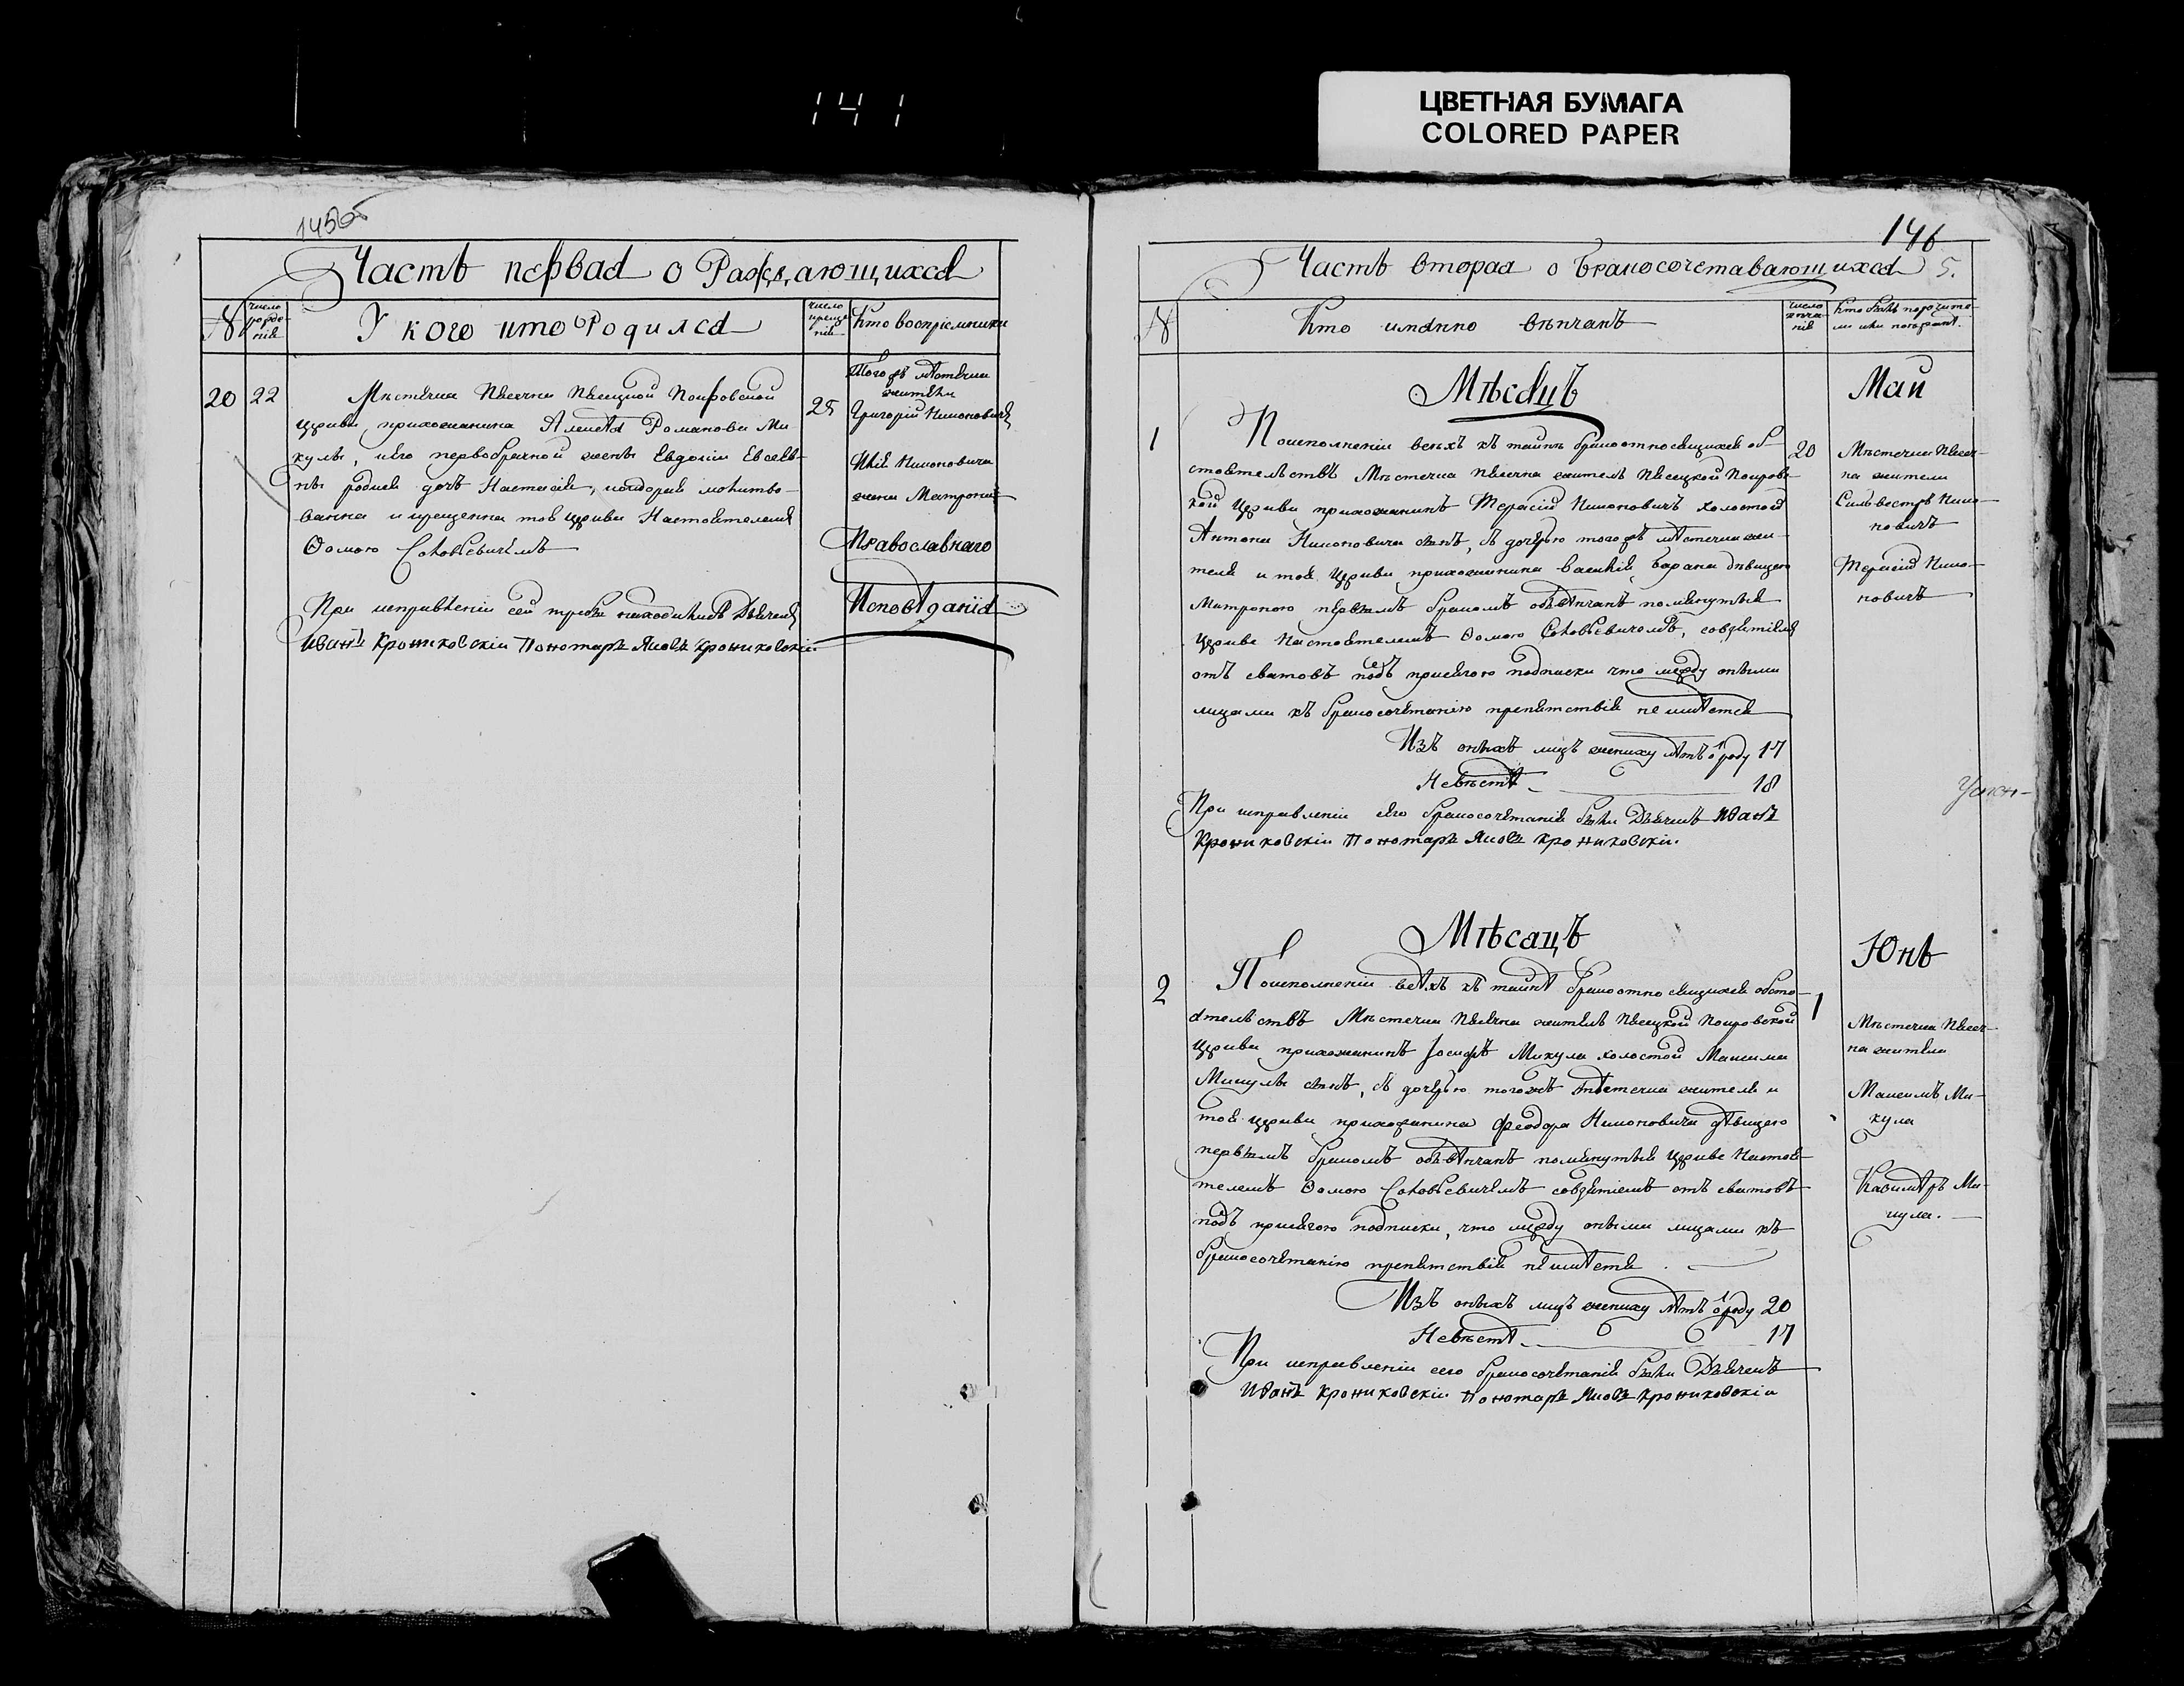 141
ЦВЕТНАЯ БУМАГА
COLORED PAPER
145об
Часть первая о Раждающихся
№
число рожденія
У кого кто Родился
число крещенія
Кто воспріемники
20 22
Мѣстечка Пѣсечна Пѣсецкой Покровской
церкви прихожанина Алексѣя Романова Ми-
кулы, и его первобрачной жены Евдокіи Евсеев-
ны родися дочъ Настасія, которая молитво-
ванна и крещенна тоя церкви Настоятелемъ
Ѳомою Соловьевичемъ
При исправленіи сей требы находились Дьячекъ
Иванъ Крониковскіи Пономарь Яковъ Крониковскіи
25
Того жъ мѣстечка
жители
Григорій Никоновичъ
Никоновича
жена Матрона
Православнаго
Исповѣданія
146
Часть вторая о бракосочетавающихся 5.
№
Кто имянно вѣнчанъ
число вѣнчанія
Кто были поручите-
ли или поѣзжан.
Мѣсяцъ
Май
1
По исполненіи всѣхъ къ тайнѣ брака относящихся об-
стоятельствъ Мѣстечка Пѣсечна житель Пѣсецкой Покровс-
кой Церкви прихожанинъ Терасій Никоновичъ холостой
Антона Никоновича сынъ, съ дочерью того жъ мѣстечка жи-
теля и тоя Церкви прихожанина Василія Барана дѣвицею
Матроною первымъ бракомъ обвѣнчанъ помянутыя
Церкве Настоятелемъ Ѳомою Соловьевичомъ, со взятіемъ
отъ сватовъ подъ присягою подписки что между оными
лицами къ бракосочетанію препятствія не имѣется
Изъ оныхъ лицъ жениху лѣтъ о роду 17
Невѣстѣ 18
При исправленіи сего бракосочетанія были Дьячекъ Иванъ
Крониковскіи Пономарь Яковъ Крониковскіи.
20
Мѣстечка Пѣсеч-
на жители
Сильвестръ Нико-
новичъ
Терасій Нико-
новичъ
Мѣсацъ
Юнь
2
По исполненіи всѣхъ къ тайнѣ брака относящихся обсто-
ятельствъ Мѣстечка Пѣсечна житель Пѣсецкой Покровской
Церкви прихожанинъ Іосифъ Микула холостой Максима
Микулы сынъ, съ дочерью тогожъ мѣстечка жителя и
тоя церкви прихожанина Феодора Никоновича дѣвицею
первымъ бракомъ обвѣнчанъ помянутыя Церкве Настоя-
телемъ Ѳомою Соловьевичемъ со взятіемъ отъ сватовъ
подъ присягою подписки, что между оными лицами къ
бракосочетанію препятствія не имѣется.
Изъ оныхъ лицъ жениху лѣтъ о роду 20
Невѣстѣ 17
При исправленіи сего бракосочетанія были Дьячекъ
Иванъ Крониковскіи Пономарь Яковъ Крониковскіи
1
Мѣстечка Пѣсеч-
на жители
Максимъ Ми-
кула
Казиміръ Ми-
кула.